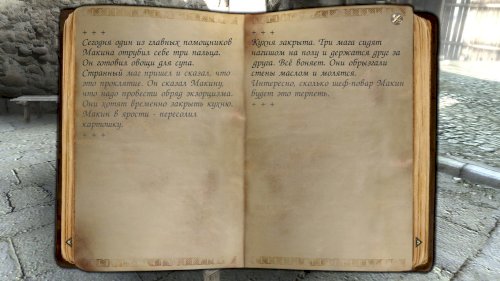 + + +
Сегодня один из главных помощников
Макина отрубил себе три пальца.
Он готовил овощи для супа.
Странный маг пришел и сказал, что
это проклятие. Он сказал Макину,
что надо провести обряд экзорцизма.
Они хотят временно закрыть кухню.
Макин в ярости - пересолил
картошку.
+ + +
+ + +
Кухня закрыта. Три мага сидят
нагишом на полу и держатся друг за
друга. Всё воняет. Они обрызгали
стены маслом и молятся.
Интересно, сколько шеф-повар Макин
будет это терпеть.
+ + +